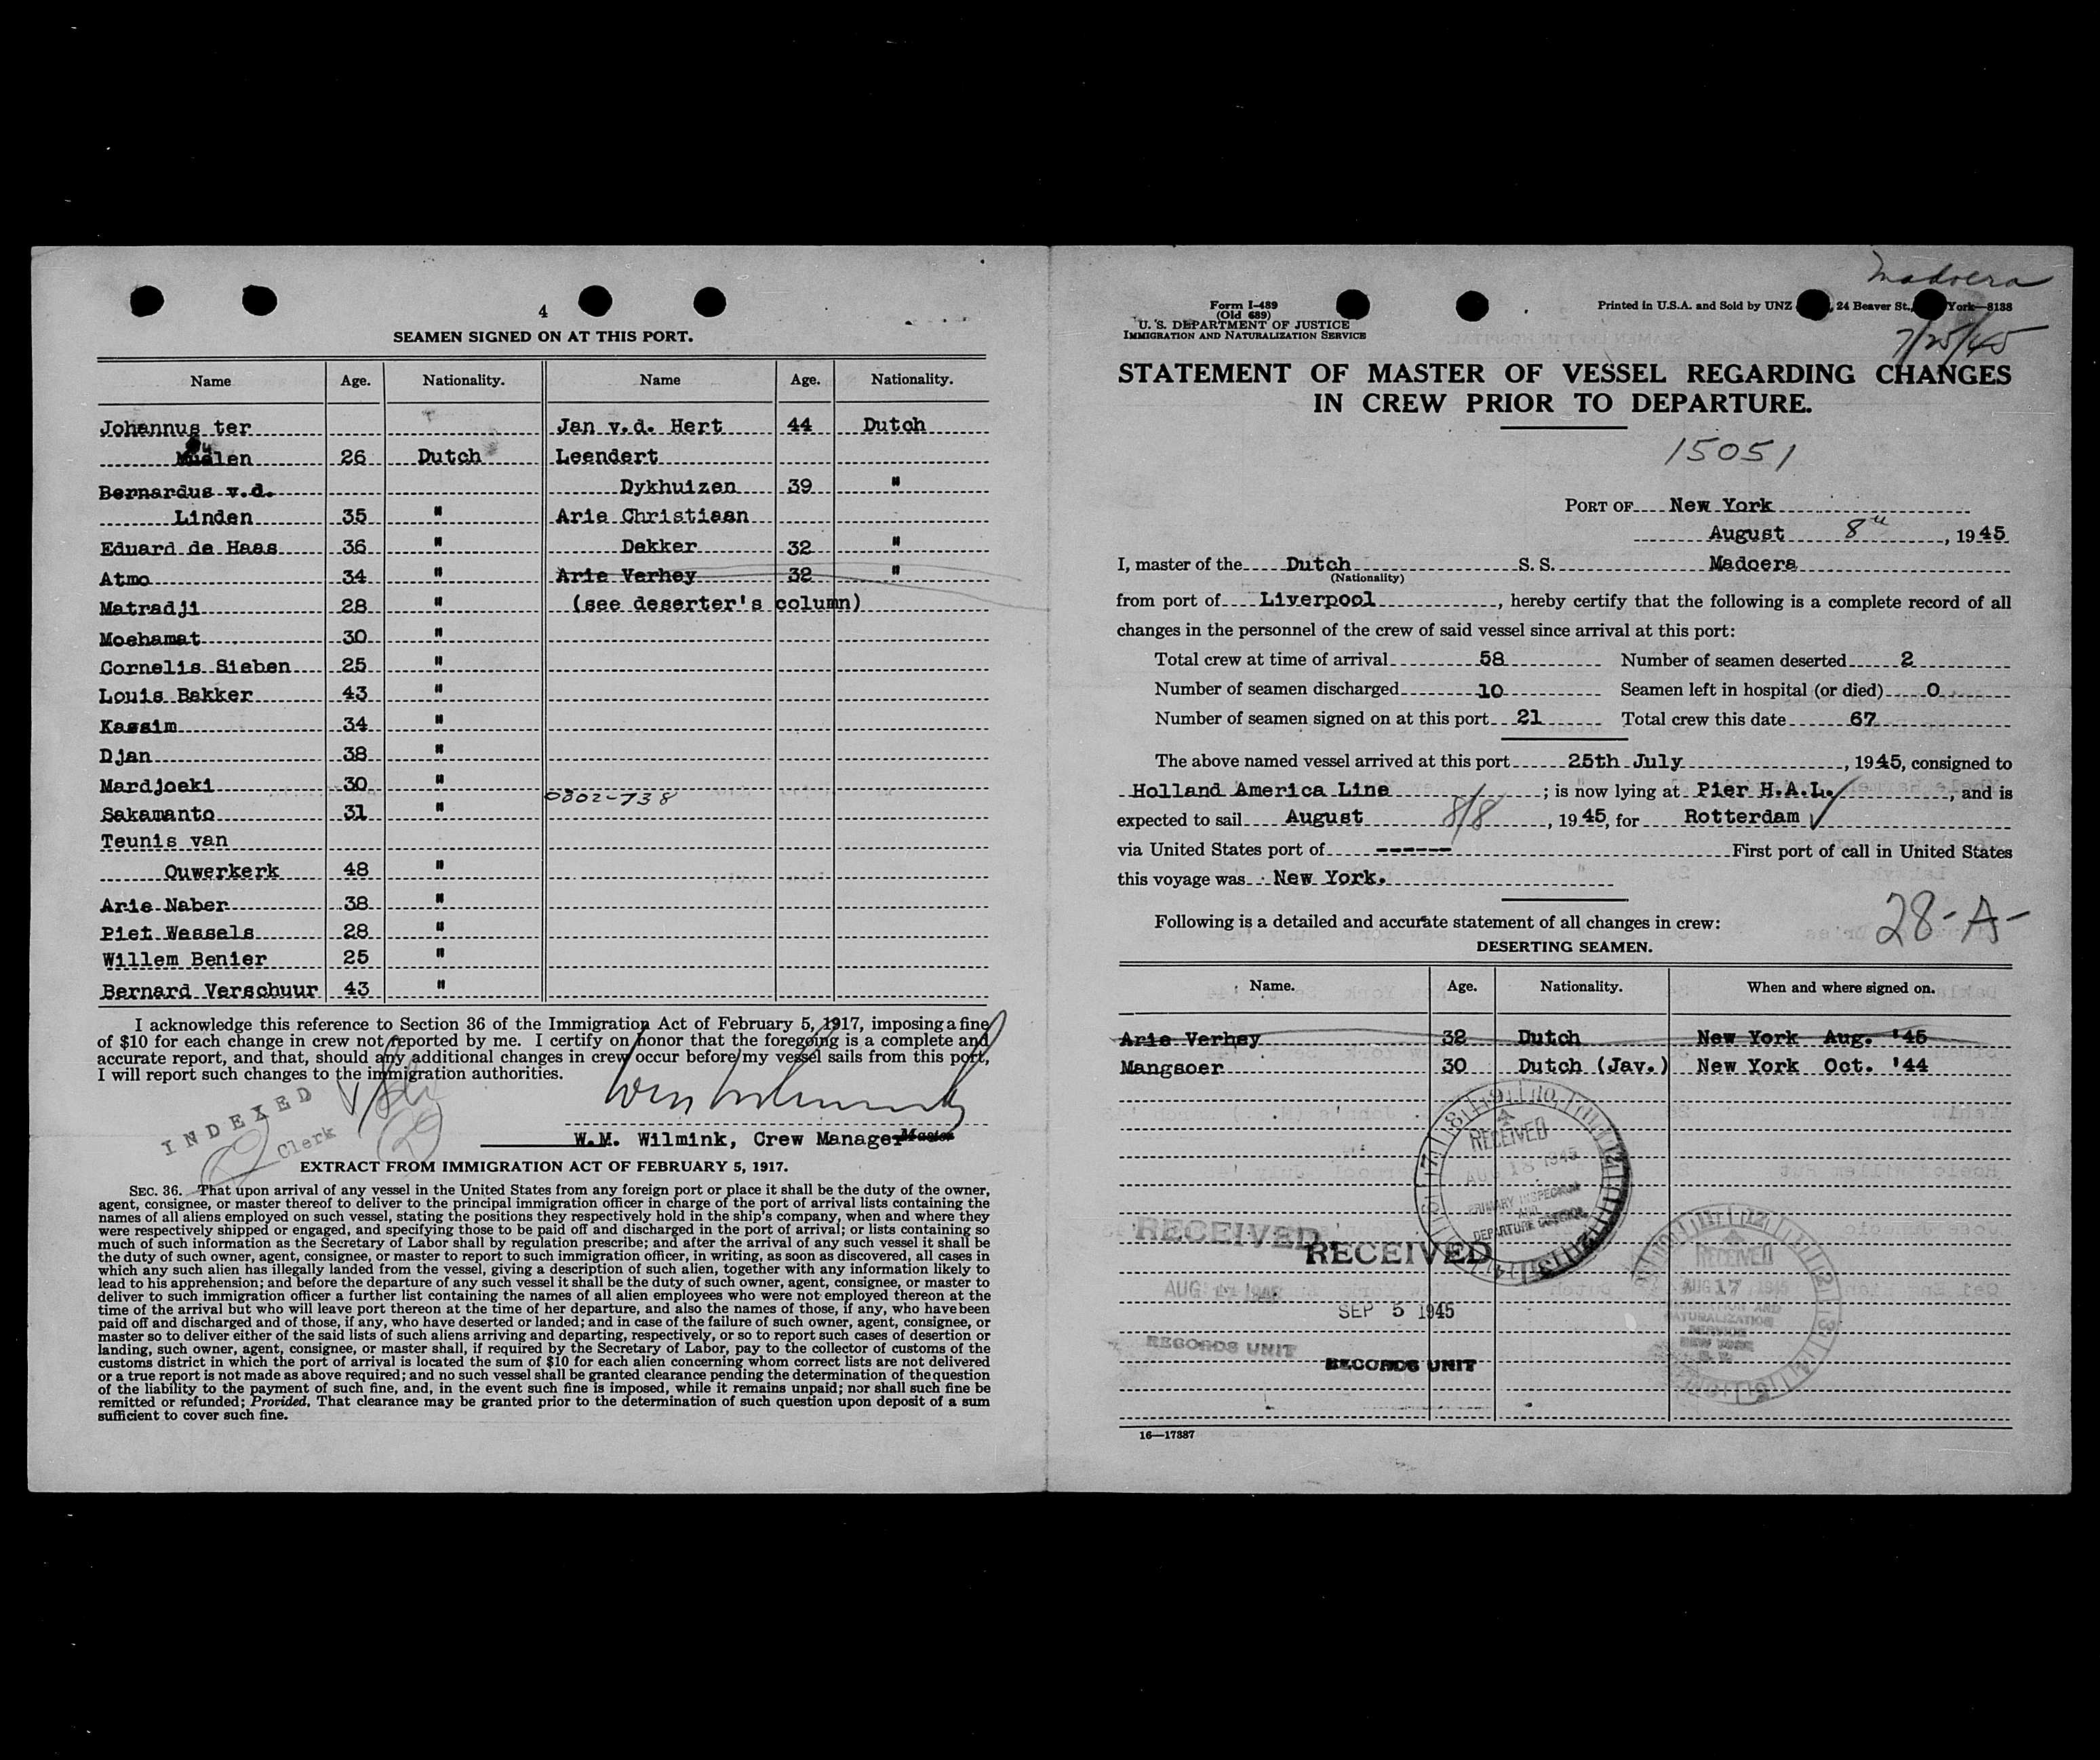 4
SEAMEN SIGNED ON AT THIS PORT.
Name Age. Nationality. Name Age. Nationality.
Johannus ter Jan v.d. Hert 44 Dutch
Meulen 26 Dutch Leendert
Bernardus v.d. Dykhuizen 39 "
Linden 35 " Arie Christiaan
Eduard de Haas 36 " Dekker 32 "
Atmo 34 " Arie Verhey 32 "
Matradji 28 " (see deserter's column)
Moehamat 30 "
Cornelis Sieben 25 "
Louis Bakker 43 "
Kassim 34 "
Djan 38 "
Mardjoeki 30 "
0302-738
Sakamanto 31 "
Teunis van
Ouwerkerk 48 "
Arie Naber 38 "
Piet Wessels 28 "
Willem Benier 25 "
Bernard Verschuur 43 "
I acknowledge this reference to Section 36 of the Immigration Act of February 5, 1917, imposing a fine
of $10 for each change in crew not reported by me. I certify on honor that the foregoing is a complete and
accurate report, and that, should any additional changes in crew occur before my vessel sails from this port,
I will report such changes to the immigration authorities.
INDEXED
Clerk
W.M. Wilmink, Crew Manager Master
EXTRACT FROM IMMIGRATION ACT OF FEBRUARY 5, 1917.
SEC. 36. That upon arrival of any vessel in the United States from any foreign port or place it shall be the duty of the owner,
agent, consignee, or master thereof to deliver to the principal immigration officer in charge of the port of arrival lists containing the
names of all aliens employed on such vessel, stating the positions they respectively hold in the ship's company, when and where they
were respectively shipped or engaged, and specifying those to be paid off and discharged in the port of arrival; or lists containing so
much of such information as the Secretary of Labor shall by regulation prescribe; and after the arrival of any such vessel it shall be
the duty of such owner, agent, consignee, or master to report to such immigration officer, in writing, as soon as discovered, all cases in
which any such alien has illegally landed from the vessel, giving a description of such alien, together with any information likely to
lead to his apprehension; and before the departure of any such vessel it shall be the duty of such owner, agent, consignee, or master to
deliver to such immigration officer a further list containing the names of all alien employees who were not employed thereon at the
time of the arrival but who will leave port thereon at the time of her departure, and also the names of those, if any, who have been
paid off and discharged and of those, if any, who have deserted or landed; and in case of the failure of such owner, agent, consignee, or
master so to deliver either of the said lists of such aliens arriving and departing, respectively, or so to report such cases of desertion or
landing, such owner, agent, consignee, or master shall, if required by the Secretary of Labor, pay to the collector of customs of the
customs district in which the port of arrival is located the sum of $10 for each alien concerning whom correct lists are not delivered
or a true report is not made as above required; and no such vessel shall be granted clearance pending the determination of the question
of the liability to the payment of such fine, and, in the event such fine is imposed, while it remains unpaid; nor shall such fine be
remitted or refunded; Provided, That clearance may be granted prior to the determination of such question upon deposit of a sum
sufficient to cover such fine.
Madoera
7/25/45
Form I-489
(Old 689)
U. S. DEPARTMENT OF JUSTICE
IMMIGRATION AND NATURALIZATION SERVICE
Printed in U.S.A. and Sold by UNZ 24 Beaver St., York—8138
STATEMENT OF MASTER OF VESSEL REGARDING CHANGES
IN CREW PRIOR TO DEPARTURE.
15051
PORT OF New York
August 8th, 1945
I, master of the Dutch S. S. Madoera
(Nationality)
from port of Liverpool, hereby certify that the following is a complete record of all
changes in the personnel of the crew of said vessel since arrival at this port:
Total crew at time of arrival 58 Number of seamen deserted 2
Number of seamen discharged 10 Seamen left in hospital (or died) 0
Number of seamen signed on at this port 21 Total crew this date 67
The above named vessel arrived at this port 25th July, 1945, consigned to
Holland America Line; is now lying at Pier H.A.L., and is
expected to sail August 8/8, 1945, for Rotterdam
via United States port of ------ First port of call in United States
this voyage was New York.
28-A-
Following is a detailed and accurate statement of all changes in crew:
DESERTING SEAMEN.
Name. Age. Nationality. When and where signed on.
Arie Verhey 32 Dutch New York Aug. '45
Mangsoer 30 Dutch (Jav.) New York Oct. '44
RECEIVED
AUG 18 1945
PRIMARY INSPECTION
AND
DEPARTURE CONTROL
RECEIVED
RECORDS UNIT
RECEIVED
SEP 5 1945
RECORDS UNIT
RECEIVED
AUG 17 1945
16—17387